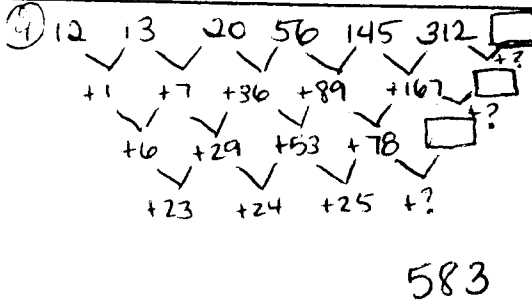 4 12 13 20 56 145 312
+?
+1 +7 +36 +89 +167
+?
+6 +29 +53 +78
+23 +24 +25 +?
583